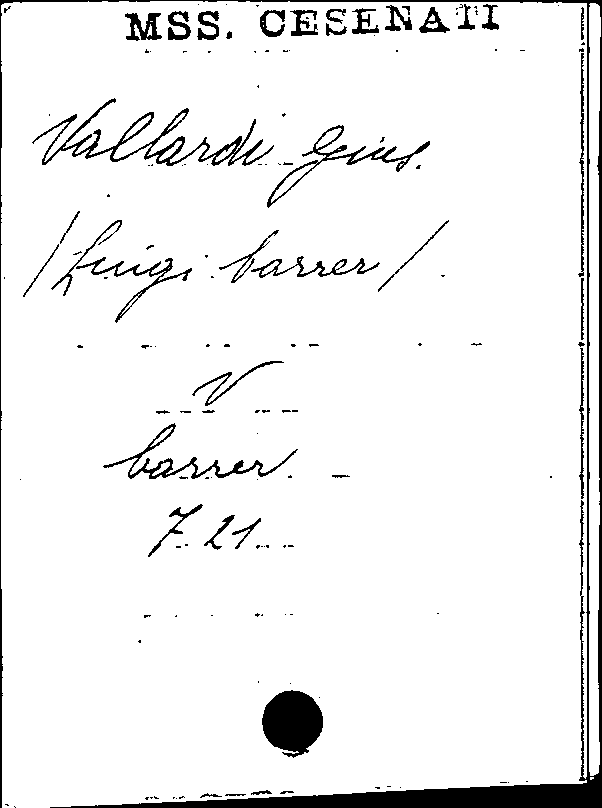 MSS. CESENATI
Vallardi Gius.
/Luigi Carrer/
V
Carrer
7.21